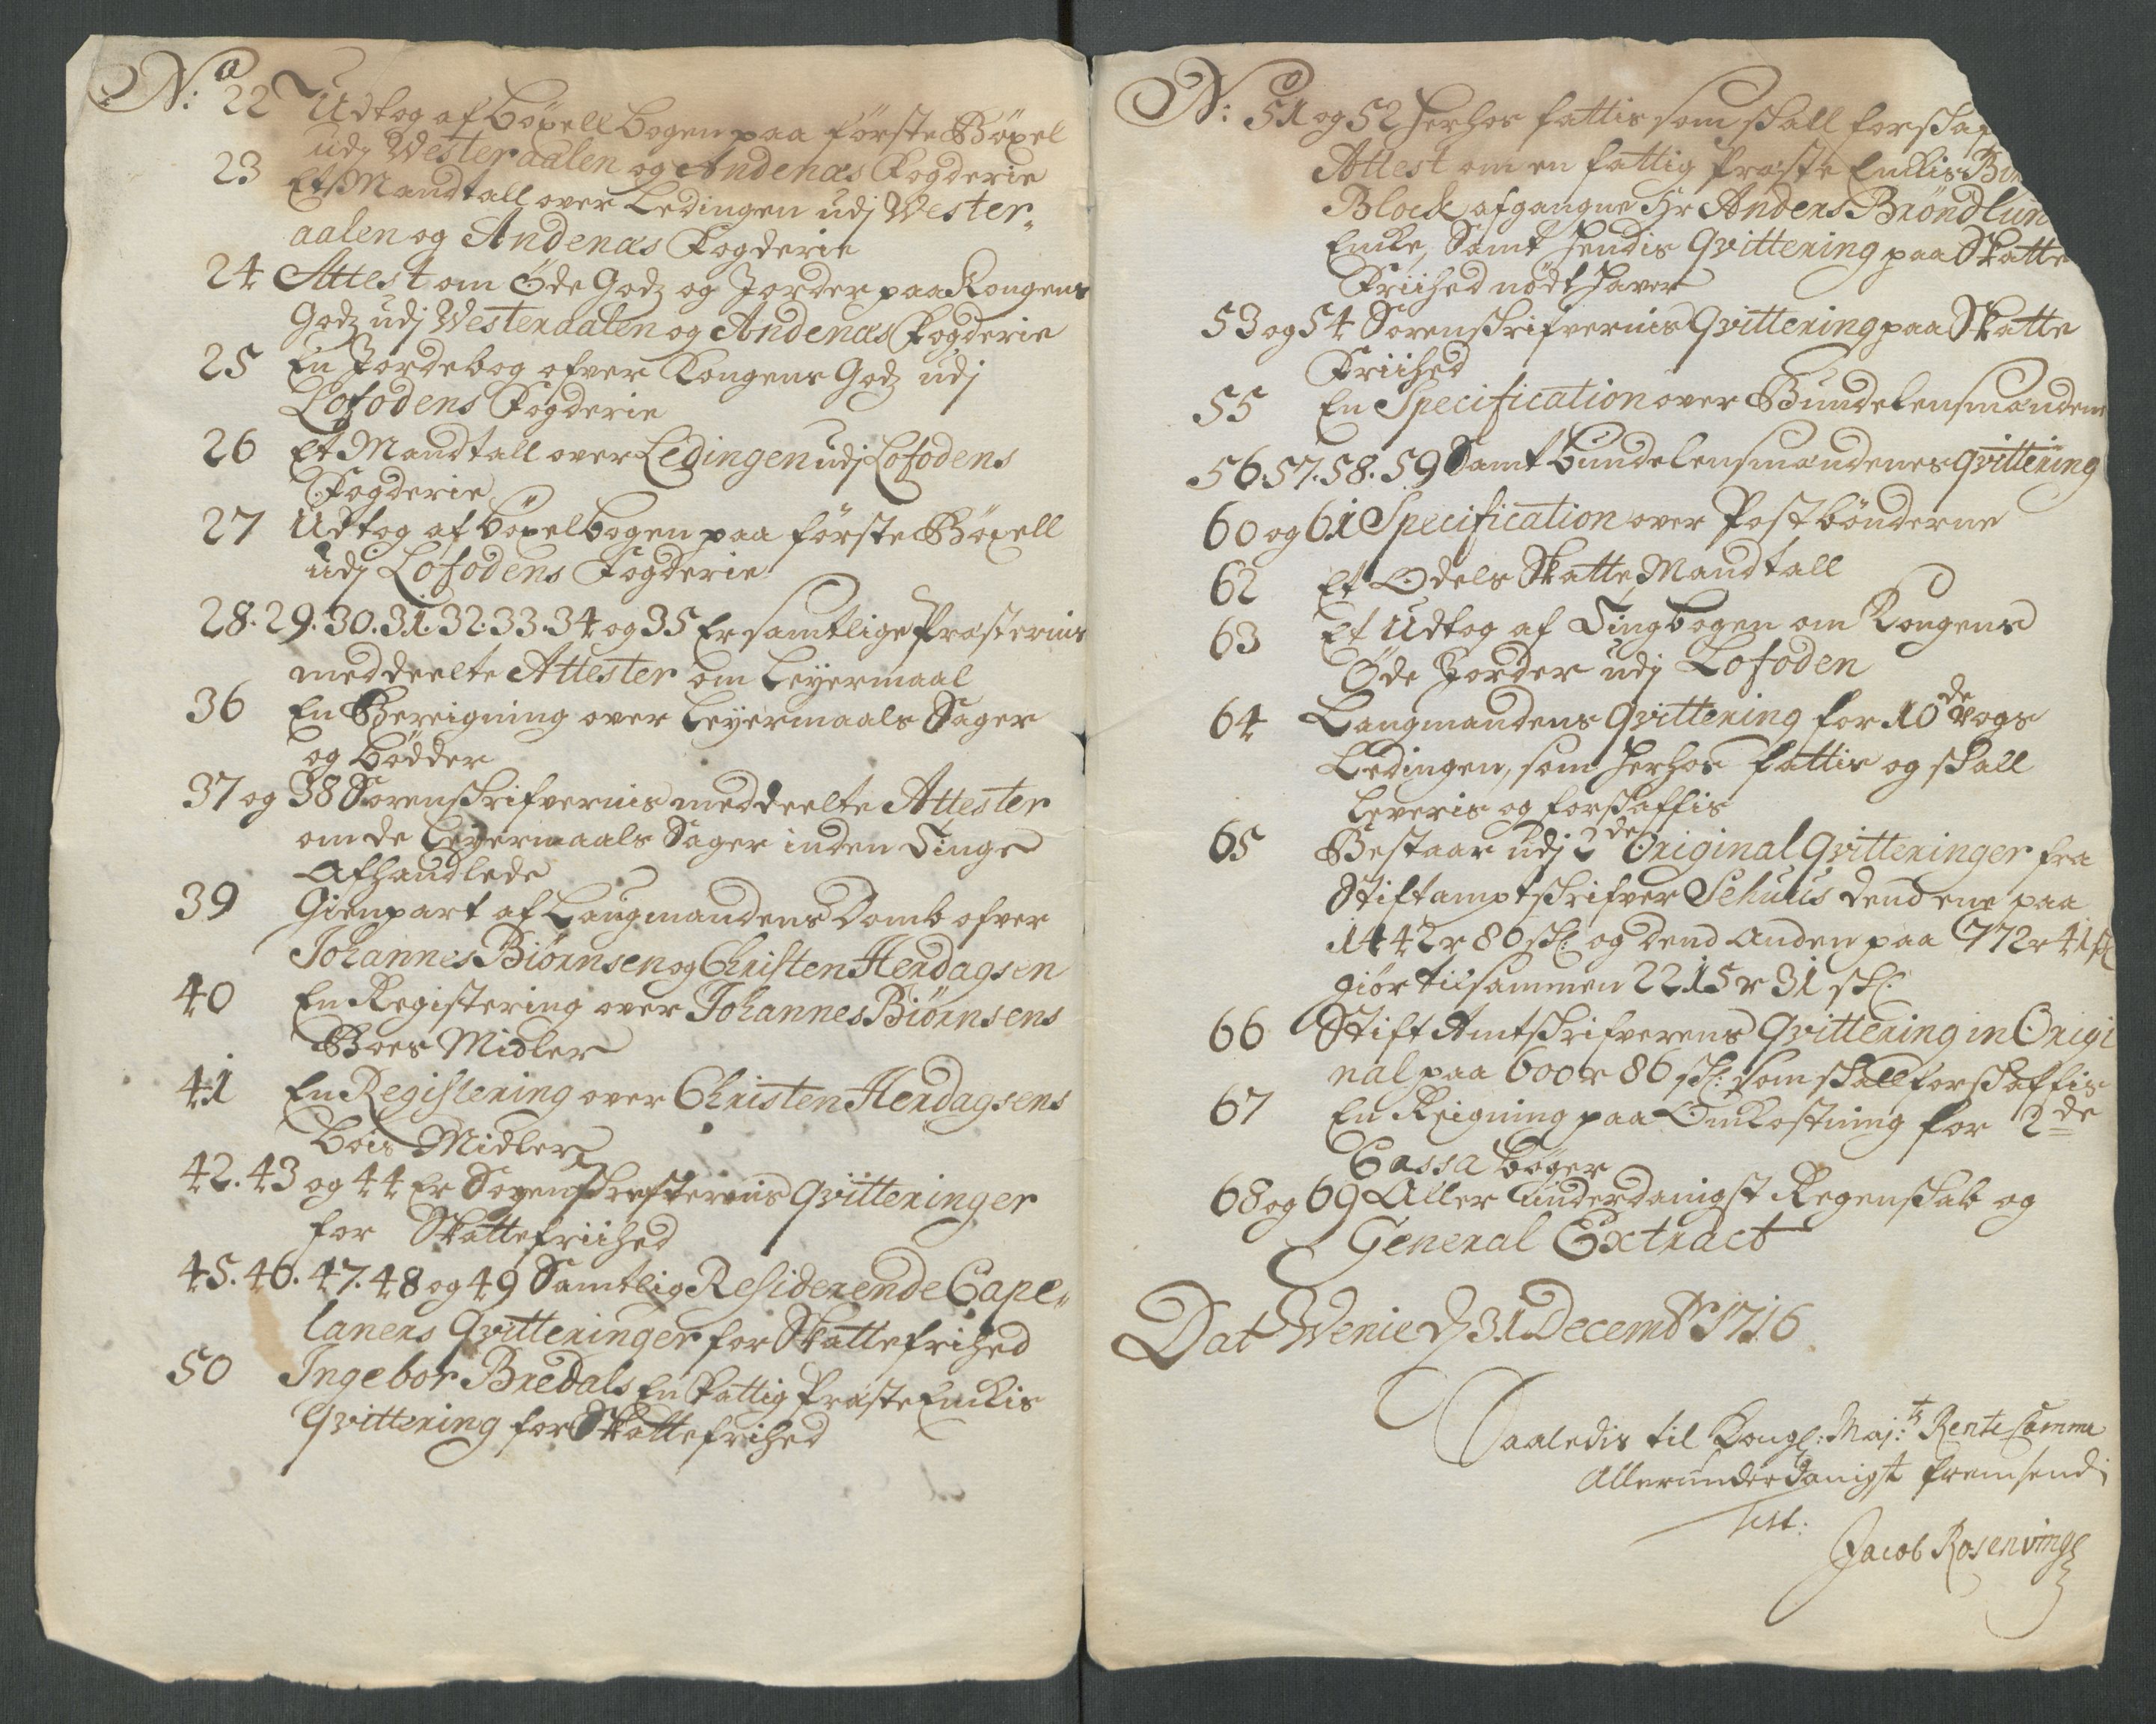 No: 22 Udtog af böxell bogen paa förste Böxel
udj Westeraalen og Andenæs Fogderie
23 Et Mandtall over Ledingen udj Wester„
aalen og Andenæs Fogderie
24 Attest om Öde Godz og Jorder paa Kongens
Godz udj Westeraalen og Andenæs Fogderie
25 En Jordebog ofver Kongens Godz udj
Lofodens Fogderie
26 Et Mandtall over Ledingen udj Lofodens
Fogderie
27 Udtog af böxelbogen paa förste Böxell
udj Lofodens Fogderie
28. 29. 30. 31. 32. 33. 34 og 35 Er samtlige Præsternis
meddeelte Attester om Leyermaal
36 En Bereigning over Leyermaals Sager
og bödder
37 og 38 Sorenskrifvernis meddeelte Attester
om de Leyermaals Sager inden Tinge
Afhandlede
39 Gienpart af Laugmandens Domb ofver
Johannes Biörnsen og Christen Herdagsen
40 En Registering over Johannes Biörnsens
Boes Midler
41 En Registering over Christen Herdagsens
bois Midler
42. 43 og 44 Er Sorenskrifvernis Qvitteringer
for Skattefriihed
45. 46. 47. 48 og 49 Samtlig Residerende Capel„
laners Qvitteringer for Skattefrihed
50 Ingebor Bredals En Fattig Præste Enckis
Qvittering for Skattefrihed
No: 51 og 52 Herhos fattis som skall forskaf
Attest om en fattig Præste Enckis
Block afgangne Hr Anders Bröndlun
Encke, Samt Hendis Qvittering paa Skatte
Friihed nödt haver
53 og 54 Sorenskrifvernis Qvittering paa Skatte
Friihed
55 En Specification over Bundelensmændene
56. 57. 58. 59 Samt bundelensmændenes qvittering
60 og 61 Specification over Postbönderne
62 Et Odels Skatte Mandtall
63 Et Udtog af Tingbogen om Kongens
Öde Jorder udj Lofoden
64 Laugmandens Qvittering for 10de vogs
Ledingen, som Herhos fattis og skall
leveris og forskaffis
65 Bestaar udj 2de Original Qvitteringer fra
Stiftamptskrifver Schuus dend ene paa
1442 r 86 sk: og dend anden paa 772 r 41 sk
giör tilsammen 2215 r 31 sk:
66 Stift Amtskrifverens Qvittering in Origi
nal paa 600 r 86 sk: som skall forskaffis
67 En Reigning paa Omkostning for 2de
Cassa böger
68 og 69 Aller underdanigst Regenskab og
General Extract
Dat Wenie d 31 Decembr 1716
Saaledis til Kongl: Maj:ts Rente Camme
Allerunderdanigst fremsend
Test:
Jacob Rosenvinge